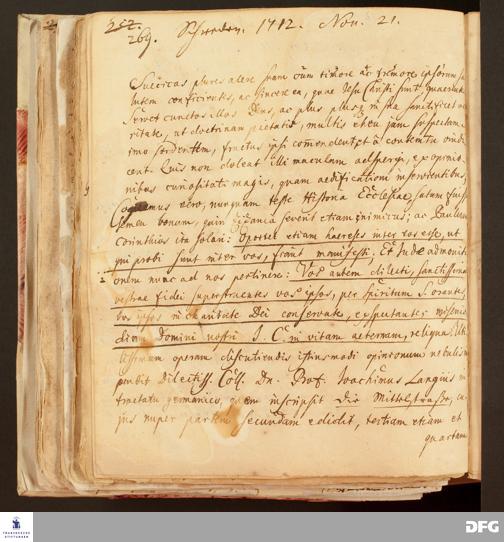 252.
269. Schweden. 1712. Nov. 21.
Suecicas plures alere suam cum timore ac tremore ipsorum sa
lutem conficientes, ac sincere ea, quae Jesu Christi sunt, quaerentes
servet cunctos illos Deus, ac plus plusq; in sua sanctificet ve
ritate, ut doctrinam pietatis, multis heu jam suspectam
imo sordentem, fructu ipsi commendent et a contemtu vindi
cent. Quis non doleat illi maculam adspergi, ex opinio
nibus curiositati magis, quam aedificationi inservientibus,
Cogitemus vero, nunquam teste Historia Ecclesiae satum fuisse
semen bonum, quin zizania severit etiam inimicus; ac Paulum
Corinthios ita solari: Oportet etiam haereses inter vos esse, ut
qui probi sunt inter vos, fiant manifesti. Et Judae admoniti
onem nunc ad nos pertinere: Vos autem dilecti, sanctissimae
vestrae fidei superstruentes vos ipsos, per Spiritum S. orantes,
vos ipsos in charitate Dei conservate, expectantes misericor
diam Domini nostri J. C. in vitam aeternam, reliqua.
listrium operam discutiendis istiusmodi opinionum nebulis im
pendit Dilectiss. Coll. Dn. Prof. Joachimus Langius in
tractatu germanico, quem inscripsit Die Mittelstrasse, cu
jus nuper partem secundam edidit, tertiam etiam et
quartam
FRANCKESCHE STIFTUNGEN
DFG